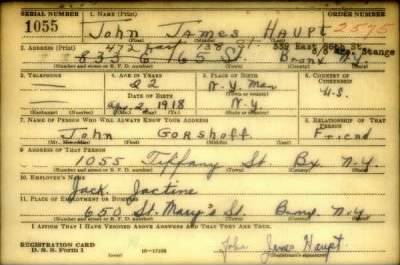 SERIAL NUMBER 1. NAME (Print) ORDER NUMBER
1055 John James Haupt 2595
2. ADDRESS (Print) 472 East 138 St. 339 East
835 E 165 St Bronx N.Y. Stange
(Number and street or R. F. D. number) (Town) (County) (State)
3. TELEPHONE 4. AGE IN YEARS 5. PLACE OF BIRTH 6. COUNTRY OF CITIZENSHIP
22 N.Y. Man
DATE OF BIRTH (Town or county) U.S.
Apr 2 1918 N.Y.
(Exchange) (Number) (Mo.) (Day) (Yr.) (State or country)
7. NAME OF PERSON WHO WILL ALWAYS KNOW YOUR ADDRESS 8. RELATIONSHIP OF THAT PERSON
John Gorshoff Friend
(First) (Middle) (Last)
9. ADDRESS OF THAT PERSON
1055 Tiffany St Bx N.Y.
(Number and street or R. F. D. number) (Town) (County) (State)
10. EMPLOYER'S NAME
Jack Jactine
11. PLACE OF EMPLOYMENT OR BUSINESS
650 St. Mary's St. N.Y
(Number and street or R. F. D. number) (Town) (County) (State)
I AFFIRM THAT I HAVE VERIFIED ABOVE ANSWERS AND THAT THEY ARE TRUE.
REGISTRATION CARD
D. S. S. Form 1 16-17105 John James Haupt
(Registrant's signature)